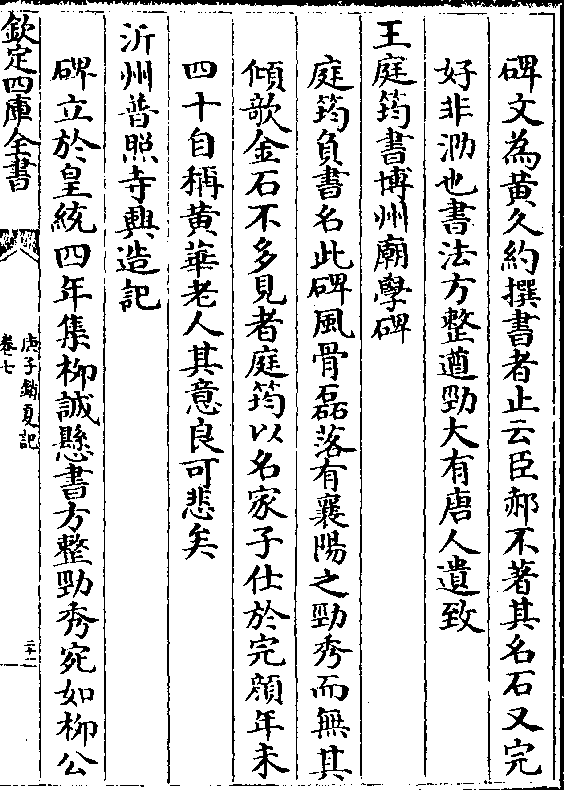 碑文為黄久約撰書者止云臣郝不著其名石又完
好非泐也書法方整遒勁大有唐人遺致
王庭筠書博州廟學碑
庭筠負書名此碑風骨磊落有襄陽之勁秀而無其
傾欹金石不多見者庭筠以名家子仕於完顔年未
四十自稱黄華老人其意良可悲矣
沂州普照寺興造記
碑立於皇統四年集栁誠懸書方整勁秀宛如栁公
欽定四庫全書
庚子銷夏記
卷七